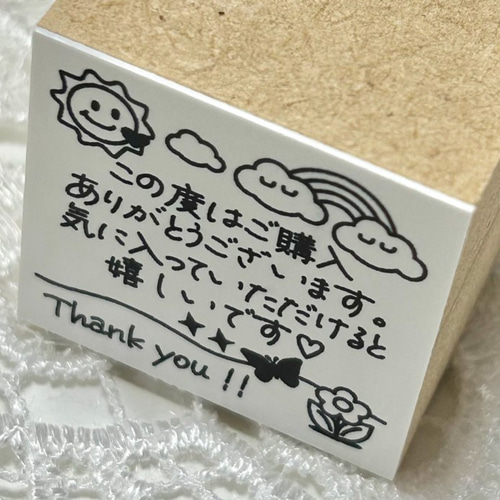 この度はご購入
ありがとうございます。
気に入っていただけると
嬉しいです♡
Thank you !!